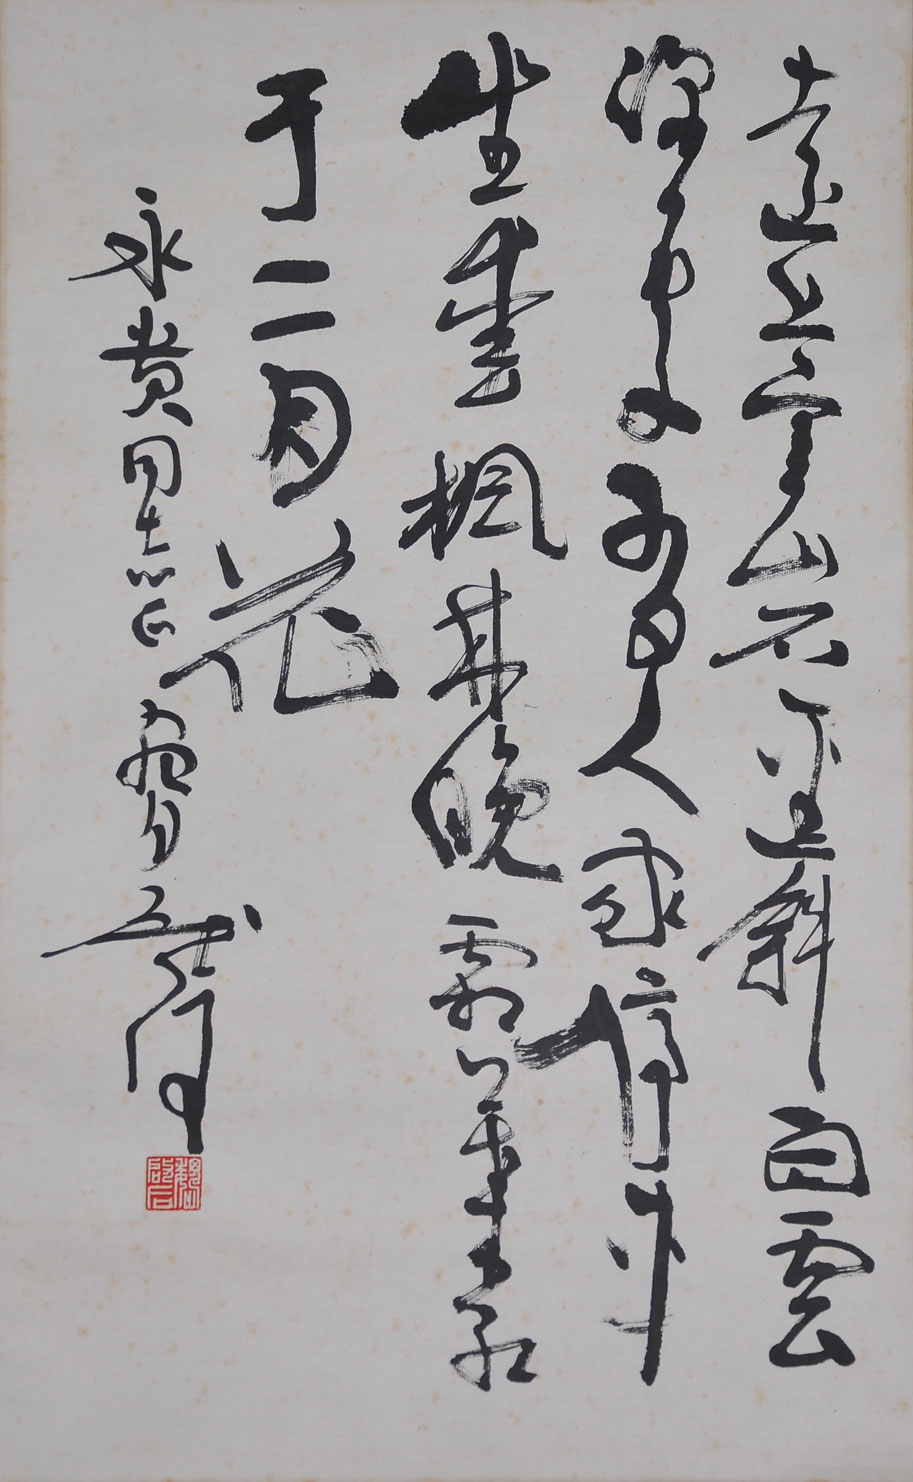 遠上寒山石逕斜白雲
深處有人家停車
坐愛楓林晚霜葉紅
于二月花
永貴同志正
魏啟后